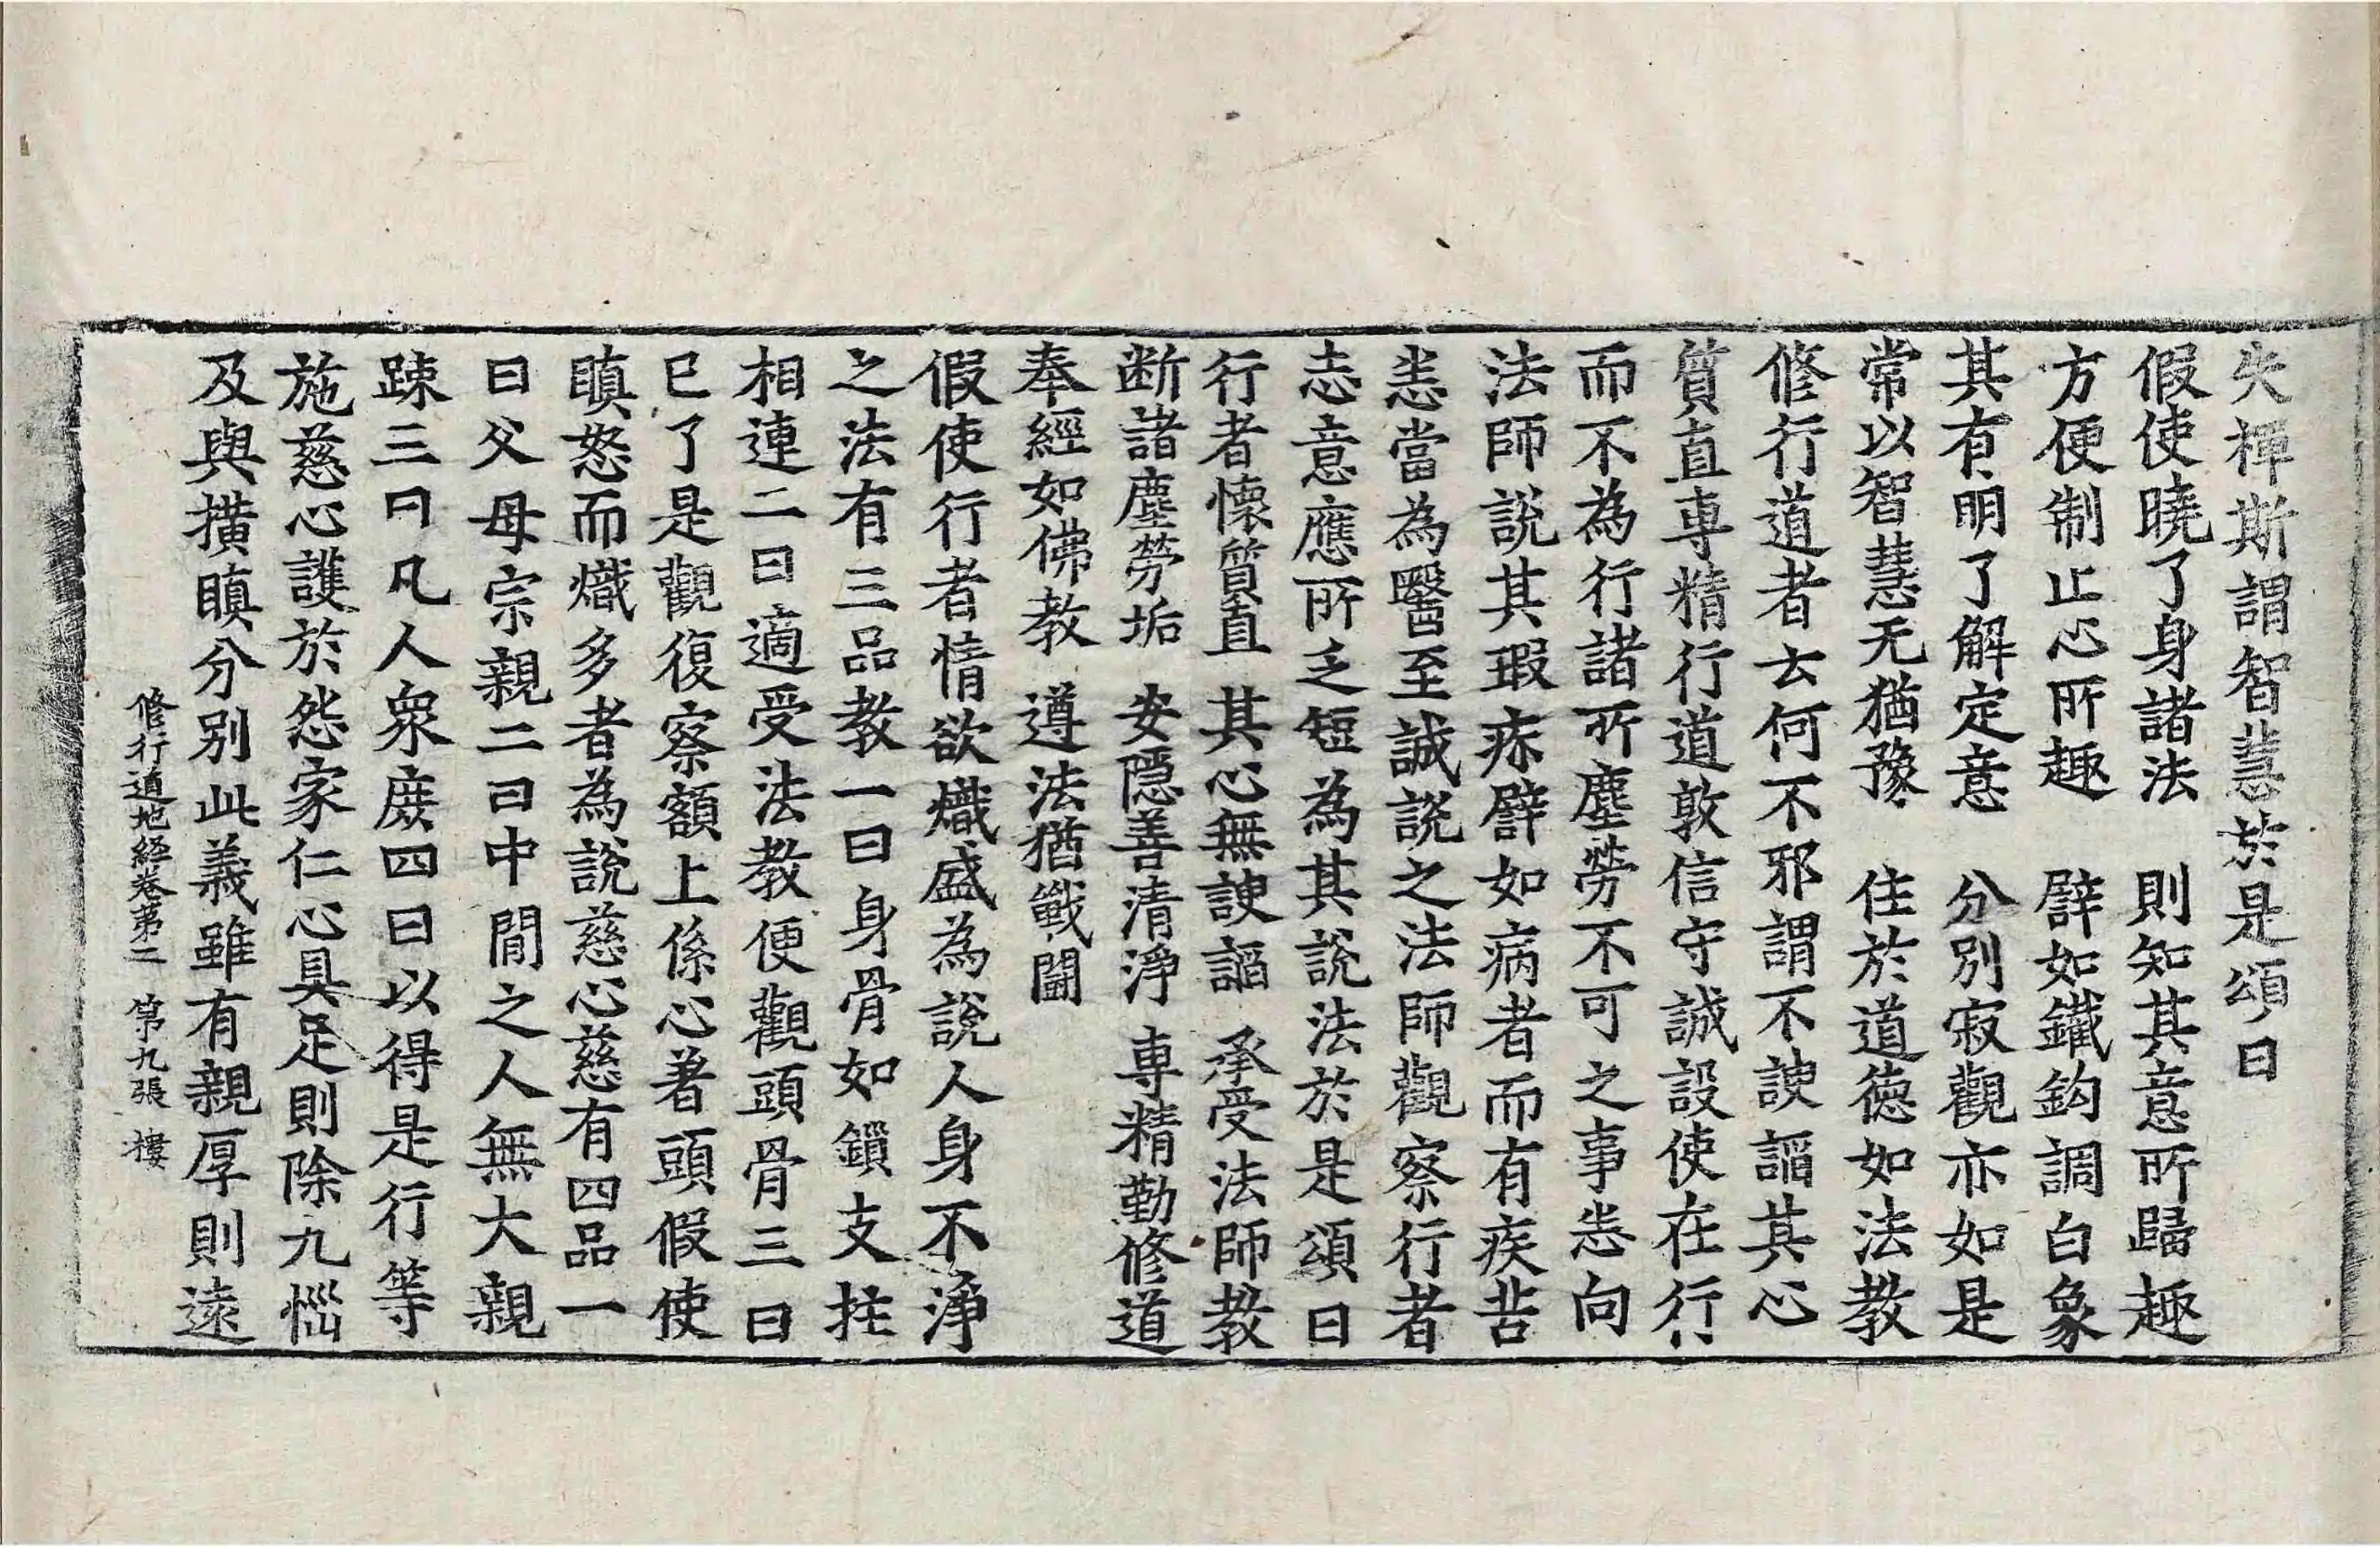 失禪斯謂智慧於是頌曰
假使曉了身諸法　則知其意所歸趣
方便制止心所趣　辟如鐵鉤調白象
其有明了解定意　分別寂觀亦如是
常以智慧无猶豫　住於道德如法教
修行道者云何不邪謂不諛謟其心
質直專精行道敦信守誠設使在行
而不為行諸所塵勞不可之事恙向
法師說其瑕疢辟如病者而有疾苦
恙當為醫至誠說之法師觀察行者
志意應所乏短為其說法於是頌曰
行者懷質直　其心無諛謟　承受法師教
断諸塵勞垢　安隱善清淨　專精勤修道
奉經如佛教　遵法猶戰鬪
假使行者情欲熾盛為說人身不淨
之法有三品教一曰身骨如鎖支拄
相連二曰適受法教便觀頭骨三曰
已了是觀復察額上係心著頭假使
瞋怒而熾多者為說慈心慈有四品一
曰父母宗親二曰中間之人無大親
踈三曰凡人衆庶四曰以得是行等
施慈心護於怨家仁心具足則除九惱
及與撗瞋分別此義雖有親厚則遠
修行道地經卷第二　第九張　樓